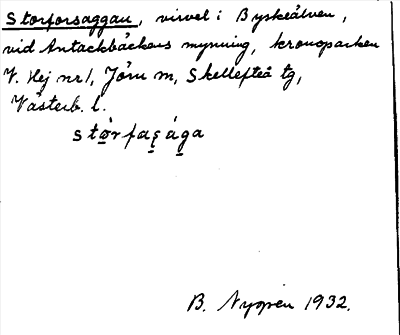 Storforsaggan, virvel i Byskeälven,
vid Antackbäckens mynning, kronoparken
V. Hej nr 1, Jörn sn, Skellefteå tg,
Västerb. l.
B. Nyopén 1932.